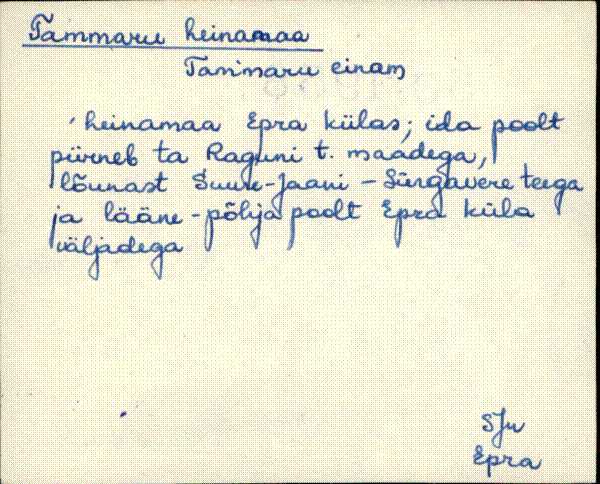 Tammaru heinamaa
Tammaru einam
heinamaa Epra külas; ida poolt
piirneb ta Raguni t. maadega,
lõunast Suure-Jaani - Sürgavere teega
ja lääne-põhja poolt Epra küla
väljadega
SJn
Epra